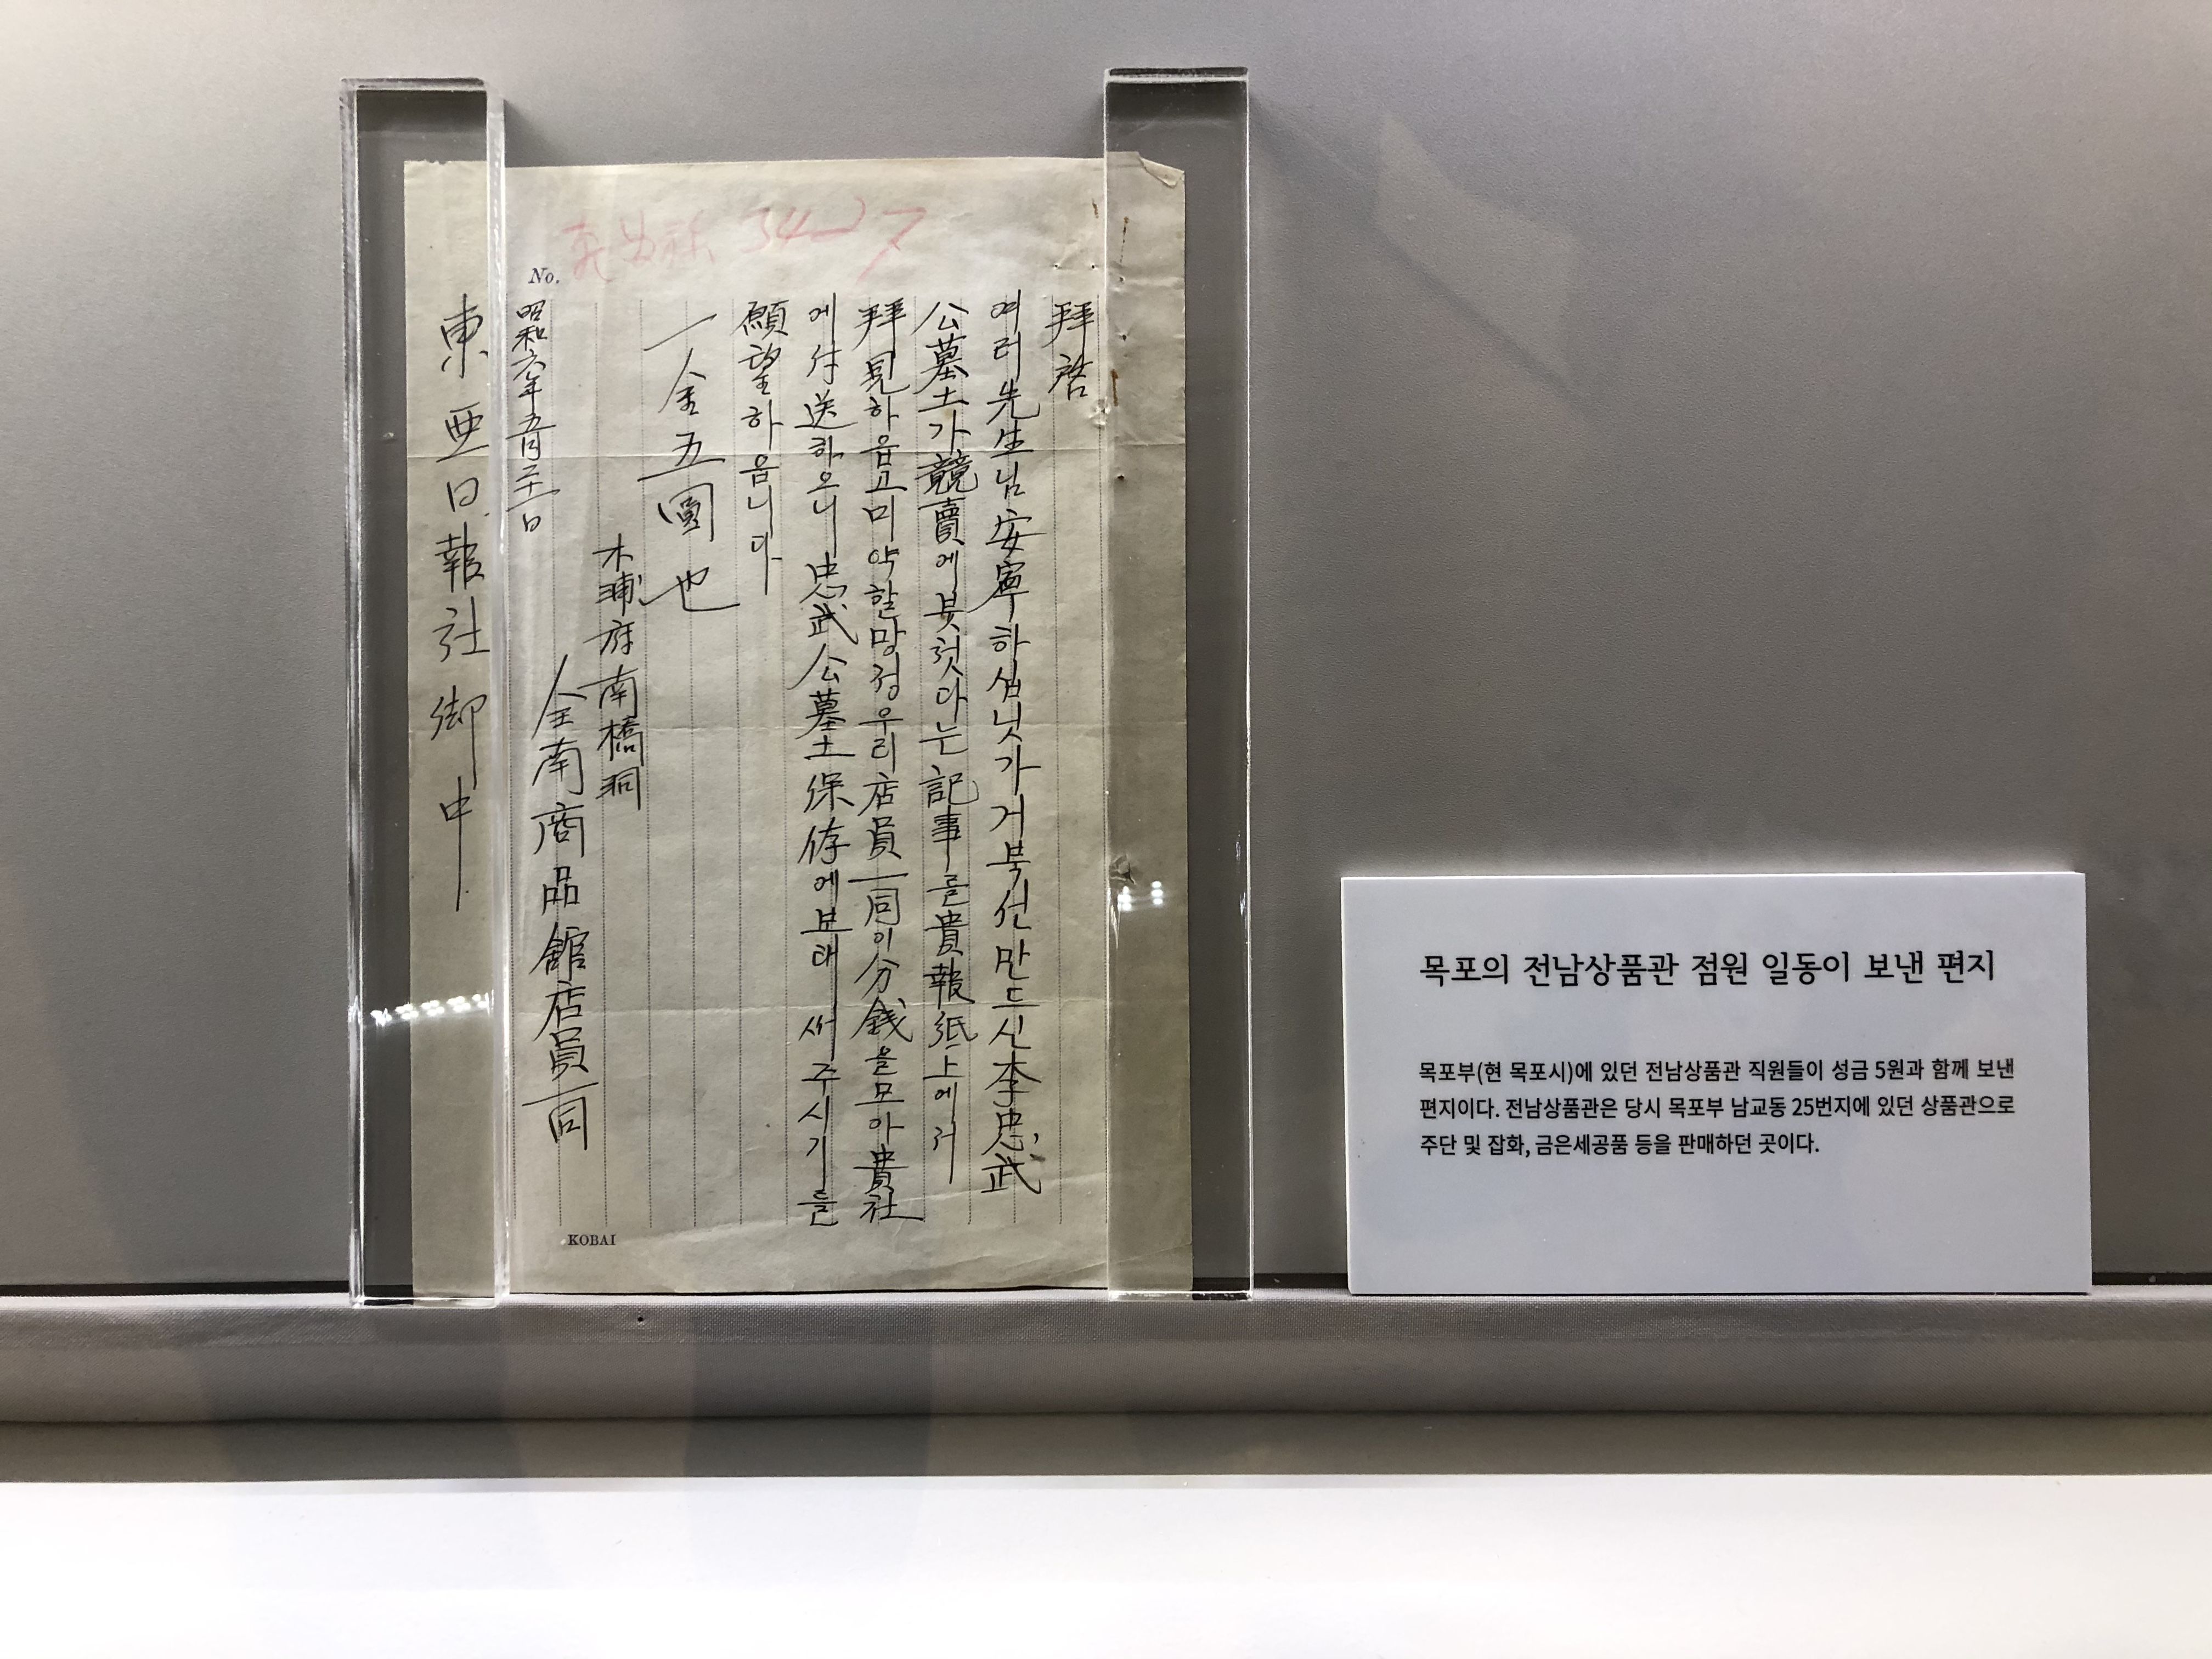 No.
拜啓
여러先生님安寧하심닛가거북선만드신李忠武
公墓土가競賣에붓첫다는記事를貴報紙上에서
拜見하옵고미약할망정우리店員一同이分錢을모아貴社
에付送하오니忠武公墓土保存에보태써주시기를
願望하옵니다
一金五圓也
木浦府南橋洞
全南商品館店員一同
昭和六年五月二十一日
東亜日報社御中
KOBAI
목포의 전남상품관 점원 일동이 보낸 편지
목포부(현 목포시)에 있던 전남상품관 직원들이 성금 5원과 함께 보낸
편지이다. 전남상품관은 당시 목포부 남교동 25번지에 있던 상품관으로
주단 및 잡화, 금은세공품 등을 판매하던 곳이다.